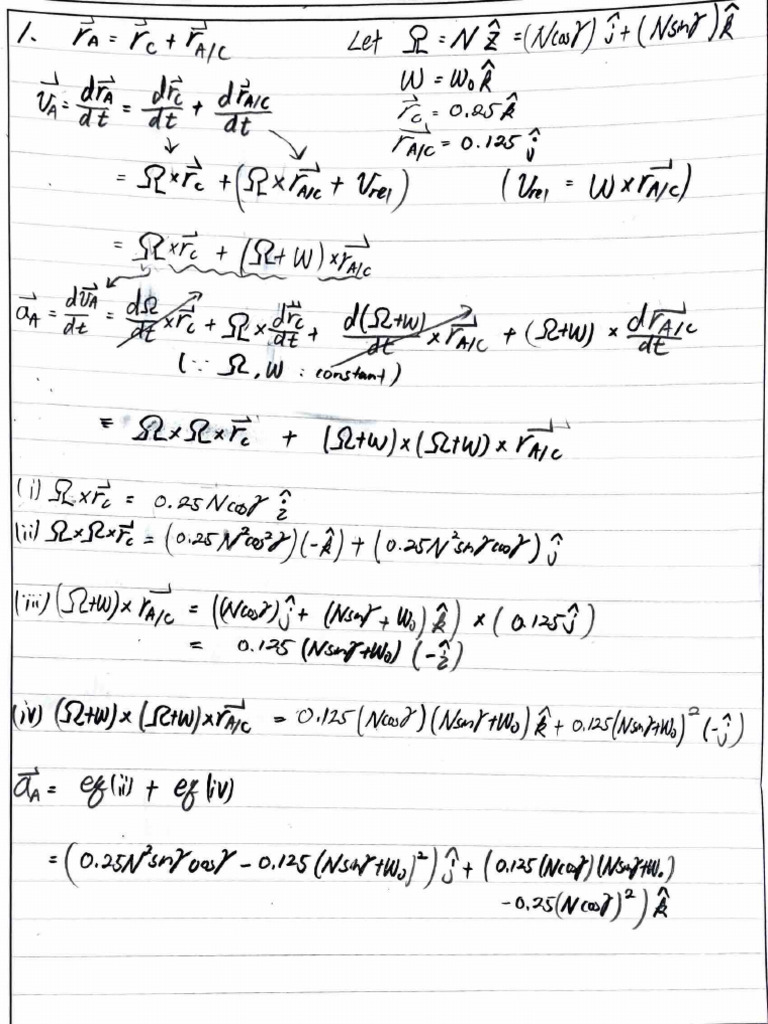 1. r⃗_A = r⃗_C + r⃗_A/C    Let Ω = N ẑ = (Ncosγ) ĵ + (Nsinγ) k̂
W = W₀ k̂
v⃗_A = dr⃗_A/dt = dr⃗_C/dt + dr⃗_A/C/dt    r⃗_C = 0.25 k̂
r⃗_A/C = 0.125 ĵ
= Ω × r⃗_C + (Ω × r⃗_A/C + V_rel)    (V_rel = W × r⃗_A/C)
= Ω × r⃗_C + (Ω + W) × r⃗_A/C
a⃗_A = dv⃗_A/dt = dΩ/dt × r⃗_C + Ω × dr⃗_C/dt + d(Ω+W)/dt × r⃗_A/C + (Ω+W) × dr⃗_A/C/dt
(∵ Ω, W : constant)
= Ω × Ω × r⃗_C + (Ω+W) × (Ω+W) × r⃗_A/C
(i) Ω × r⃗_C = 0.25 Ncosγ î
(ii) Ω × Ω × r⃗_C = (0.25 N²cos²γ)(-k̂) + (0.25N²sinγcosγ) ĵ
(iii) (Ω+W) × r⃗_A/C = ((Ncosγ) ĵ + (Nsinγ + W₀) k̂) × (0.125 ĵ)
= 0.125 (Nsinγ+W₀) (-î)
(iv) (Ω+W) × (Ω+W) × r⃗_A/C = 0.125 (Ncosγ)(Nsinγ+W₀) k̂ + 0.125(Nsinγ+W₀)² (-ĵ)
a⃗_A = eq(ii) + eq(iv)
= (0.25N²sinγ cosγ - 0.125 (Nsinγ+W₀)²) ĵ + (0.125(Ncosγ)(Nsinγ+W₀)
- 0.25(Ncosγ)²) k̂